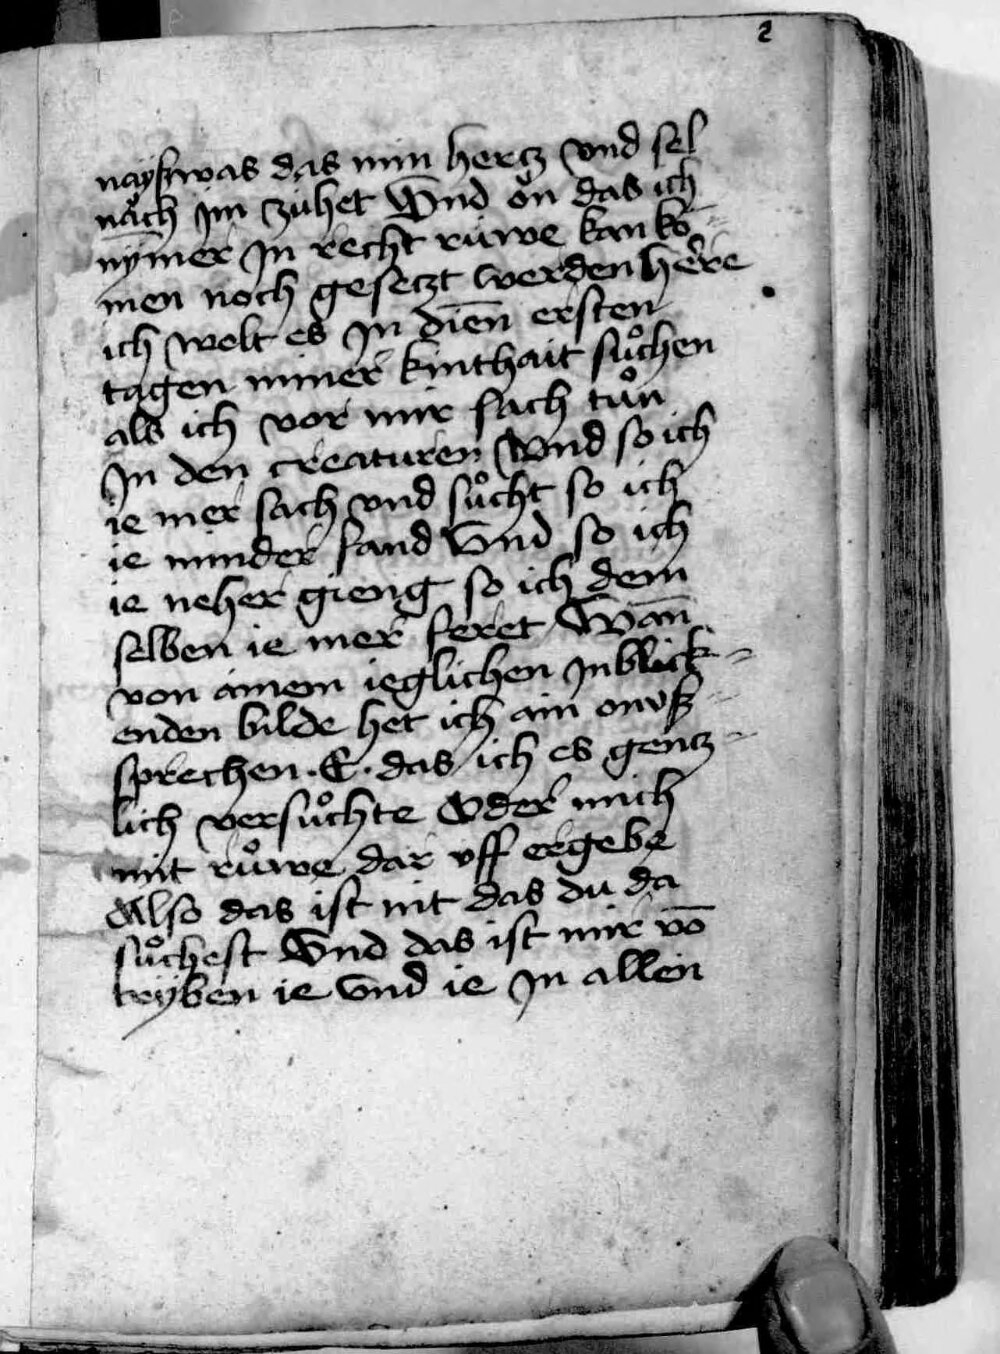 2
nayswas das min hertz vnd sel
nǎch im zühet Vnd ǒn das ich
nȳmer In recht rüwe kan ko᷄=
men noch gesetzt werden here
ich wolt es In dien ersten
tagen miner kinthait sůchen
als ich vor mir sach tůn
In den creaturen Vnd so ich
ie mer sach vnd sůcht so ich
ie minder fand Vnd so ich
ie neher gieng so ich dem
selben ie mer feret Wan̄
von ainem ieglichen Inblick=
enden bilde het ich ain
sprechen .E. das ich es gentz=
lich versůchte Oder mich
mit růwe dar vff ergebe
Also das ist nit das du da
sůchest Vnd das ist mir vō
tryben ie vnd ie In allen